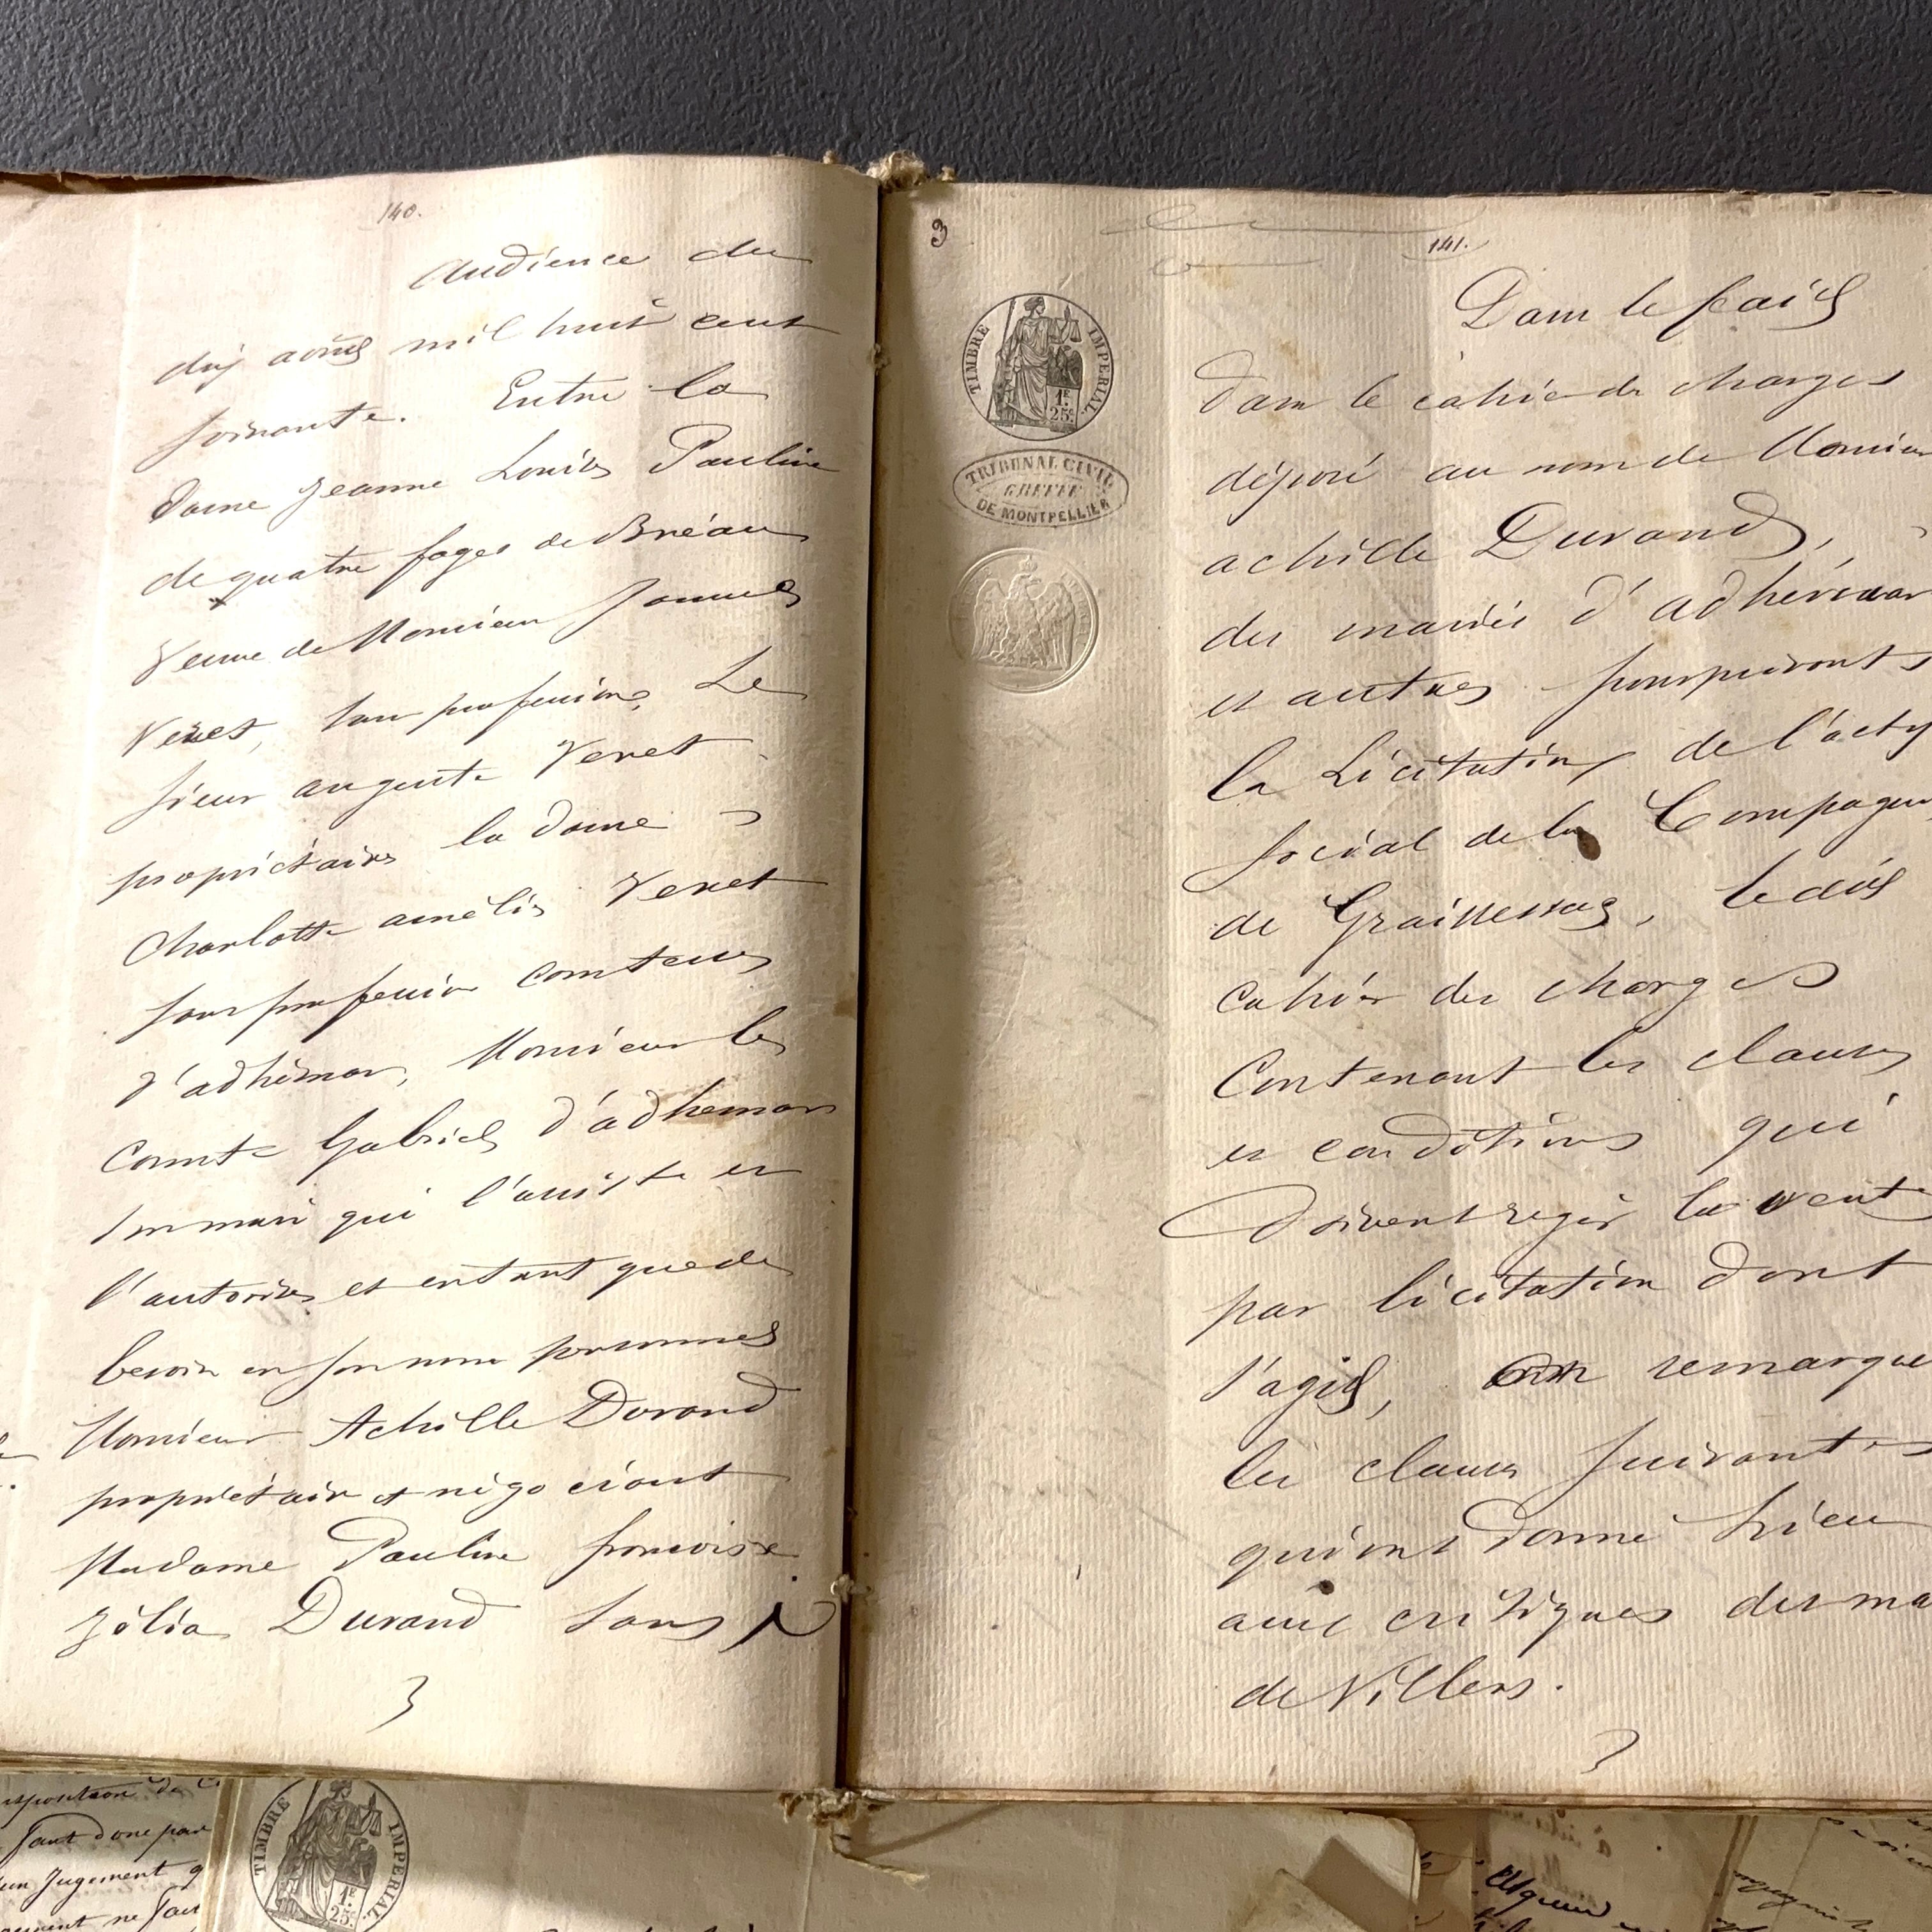 140.
Audience du
dix août mil huit cent
soixante. Entre la
Dame Jeanne Louise Pauline
de quatre fages de Bréau
Veuve de Monsieur Samuel
Venet, sans profession, Le
sieur auguste Venet
propriétaire la dame
Charlotte amélie Venet
sans profession comtesse
d'adhémar, Monsieur le
Comte Gabriel d'adhemar
son mari qui l'assiste et
l'autorise et en tant que de
besoin en son nom personnel
Monsieur Achille Durand
propriétaire et négociant
Madame Pauline françoise
Zélia Durand sans
3
141.
TIMBRE IMPERIAL
1F. 25c.
TRIBUNAL CIVIL
GREFFE
DE MONTPELLIER
Dans le fait
Dans le cahier des charges
déposé au nom de Monsieur
achille Durand,
des mariés d'adhémar
et autres poursuivants
la Licitation de l'actif
social de la Compagnie
de Graissessac, ledit
Cahier des charges
Contenant les clauses
et conditions qui
doivent régir la vente
par licitation dont
s'agit, on remarque
les clauses suivantes
qui ont donné lieu
aux critiques des ma
de Villers.
TIMBRE IMPERIAL
1F. 25c.
faut donc par
un Jugement q